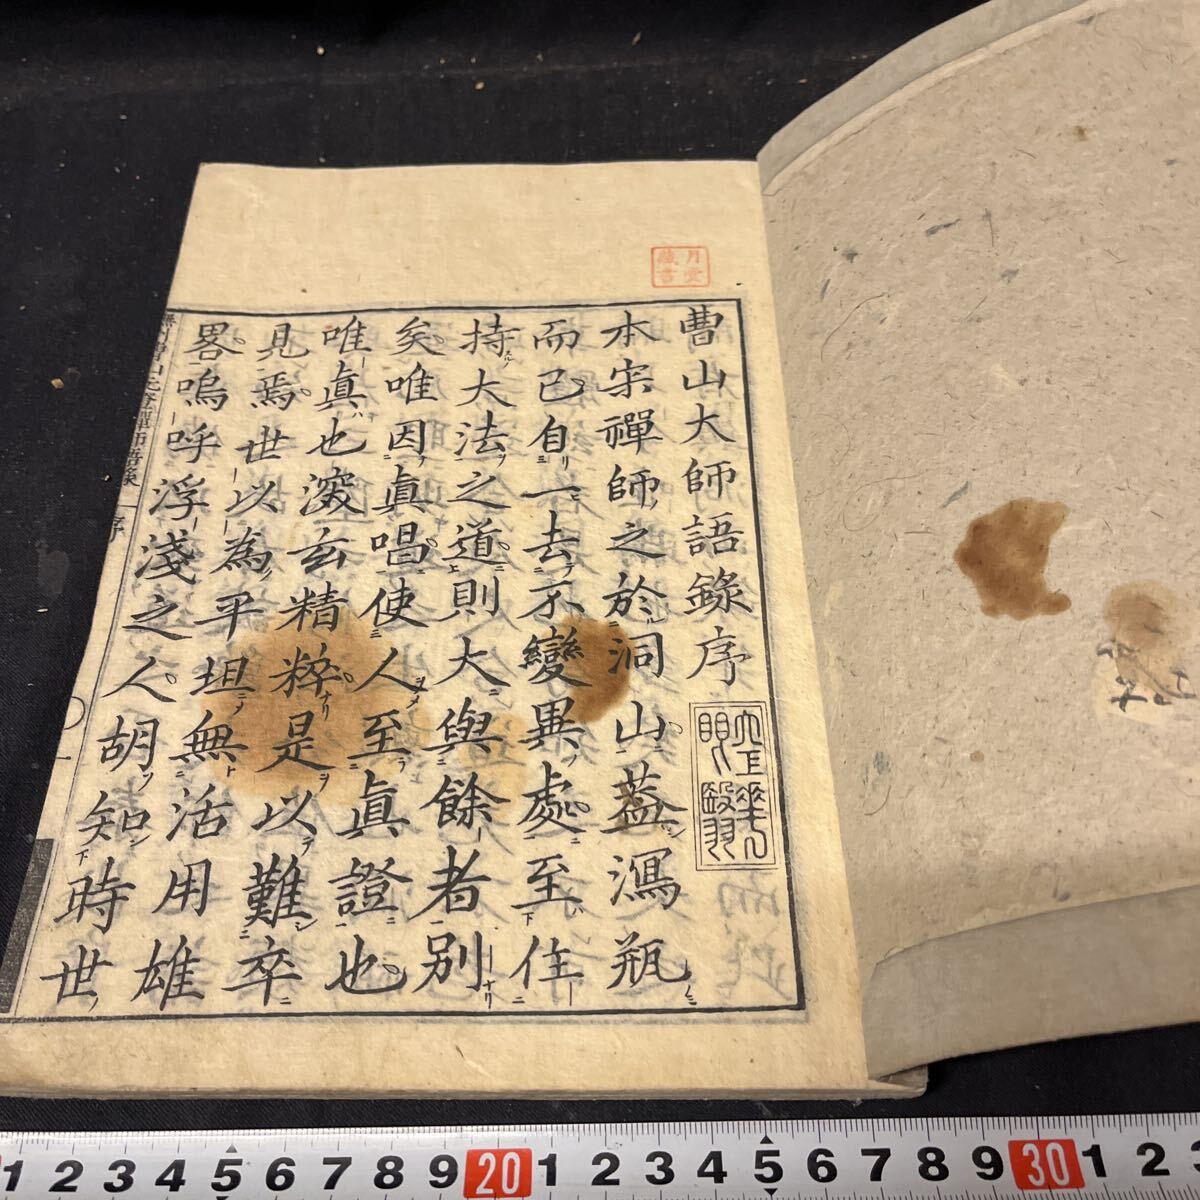 月堂
藏書
曹山大師語錄序
本宗禪師之於洞山蓋瀉瓶
而已自一去不變異處至住
持大法之道則大與餘者別
矣唯因眞唱使人至眞證也
唯眞也深玄精粹是以難卒
見焉世以為平坦無活用雄
畧嗚呼浮淺之人胡知時世
曹山元證禪師語錄 序 一
1 2 3 4 5 6 7 8 9 20 1 2 3 4 5 6 7 8 9 30 1 2